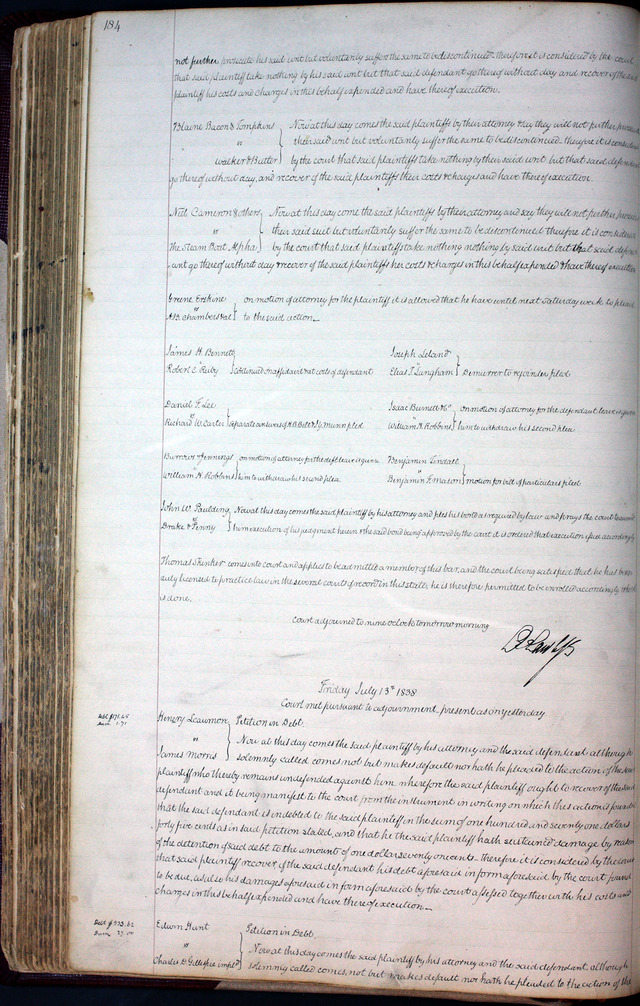 184
not further prosecute his said writ but voluntarily suffer the same to be discontinued therefore it is considered by the court
that said plaintiff take nothing by his said writ but that said defendant go thereof without day and recover of the said
plaintiff his costs and charges in this behalf expended and have thereof execution.
Blaine Bacon & Tompkins Now at this day comes the said plaintiffs by their attorney & say they will not further prosecute
" their said writ but voluntarily suffer the same to be discontinued therefore it is considered
Walker & Butler by the court that said plaintiffs take nothing by their said writ but that said defendants
go thereof without day, and recover of the said plaintiffs their costs & charges and have thereof execution.
Neil Cameron & others Now at this day come the said plaintiffs by their attorney and say they will not further prosecute
" their said suit but voluntarily suffer the same to be discontinued therefore it is considered
The Steam Boat Alpha by the court that said plaintiffs take nothing nothing by said writ but that said defend
ant go thereof without day & recover of the said plaintiffs her costs & charges in this behalf expended & have thereof execution
Greene Erskine on motion of attorney for the plaintiff it is allowed that he have until next saturday week to plead
A.B. Chambers et al to the said action
James H. Bennett
Robert C. Ruby continued on affidavit at costs of defendant
Joseph Leland
Elias T. Langham Demurrer to rejoinder filed
Daniel F. Lee
Richard W. Carter separate answers of filed
Isaac Burnett & Co on motion of attorney for the defendant leave is given
William N. Robbins him to withdraw his second plea
Burrow & Jennings on motion of attorney for the deft leave is given
William N. Robbins him to withdraw his second plea
Benjamin Tindall
Benjamin F. Mason motion for bill of particulars filed
John W. Paulding Now at this day comes the said plaintiff by his attorney and files his bond as required by law and prays the court to award
Drake & Penny him execution of his judgment herein & the said bond being approved by the court it is ordered that execution issue accordingly
Thomas Skinker comes into court and applies to be admitted a member of this bar, and the court being satisfied that he has been
duly licensed to practice law in the several courts of record in this state, he is therefore permitted to be enrolled accordingly which
is done.
Court adjourned to nine oclock tomorrow morning
Friday July 13th 1838
Court met pursuant to adjournment, present as on yesterday
Debt $171.45
Dam 1.71
Henry Leaumon Petition in Debt.
" Now at this day comes the said plaintiff by his attorney and the said defendant although
James Morris solemnly called comes not but makes default nor hath he pleaded to the action of the said
plaintiff who thereby remains undefended against him wherefore the said plaintiff ought to recover of the said
defendant and it being manifest to the court from the instrument in writing on which this action is founded
that the said defendant is indebted to the said plaintiff in the sum of one hundred and seventy one dollars
forty five cents as in said petition stated, and that he the said plaintiff hath sustained damage by reason
of the detention of said debt to the amount of one dollar seventy one cents. therefore it is considered by the court
that said plaintiff recover of the said defendant his debt aforesaid in form aforesaid by the court found
to be due, as also his damages aforesaid in form aforesaid by the court assessed together with his costs and
charges in this behalf expended and have thereof execution
Edwin Hunt Petition in Debt.
" Now at this day comes the said plaintiff by his attorney and the said defendant, although
Charles D. Gillespie impld solemnly called comes not but makes default nor hath he pleaded to the action of the